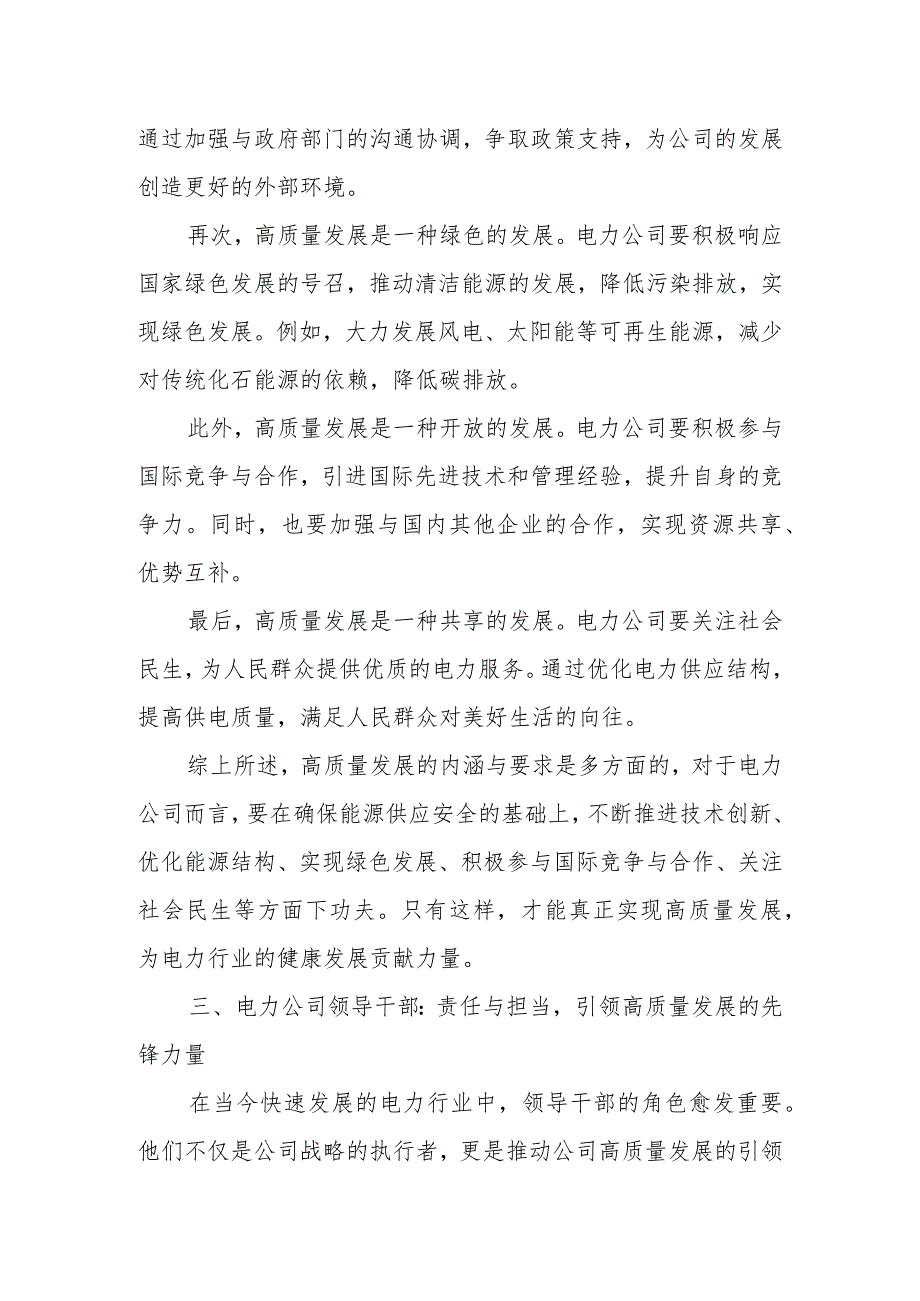 通过加强与政府部门的沟通协调，争取政策支持，为公司的发展
创造更好的外部环境。
再次，高质量发展是一种绿色的发展。电力公司要积极响应
国家绿色发展的号召，推动清洁能源的发展，降低污染排放，实
现绿色发展。例如，大力发展风电、太阳能等可再生能源，减少
对传统化石能源的依赖，降低碳排放。
此外，高质量发展是一种开放的发展。电力公司要积极参与
国际竞争与合作，引进国际先进技术和管理经验，提升自身的竞
争力。同时，也要加强与国内其他企业的合作，实现资源共享、
优势互补。
最后，高质量发展是一种共享的发展。电力公司要关注社会
民生，为人民群众提供优质的电力服务。通过优化电力供应结构，
提高供电质量，满足人民群众对美好生活的向往。
综上所述，高质量发展的内涵与要求是多方面的，对于电力
公司而言，要在确保能源供应安全的基础上，不断推进技术创新、
优化能源结构、实现绿色发展、积极参与国际竞争与合作、关注
社会民生等方面下功夫。只有这样，才能真正实现高质量发展，
为电力行业的健康发展贡献力量。
三、电力公司领导干部：责任与担当，引领高质量发展的先
锋力量
在当今快速发展的电力行业中，领导干部的角色愈发重要。
他们不仅是公司战略的执行者，更是推动公司高质量发展的引领